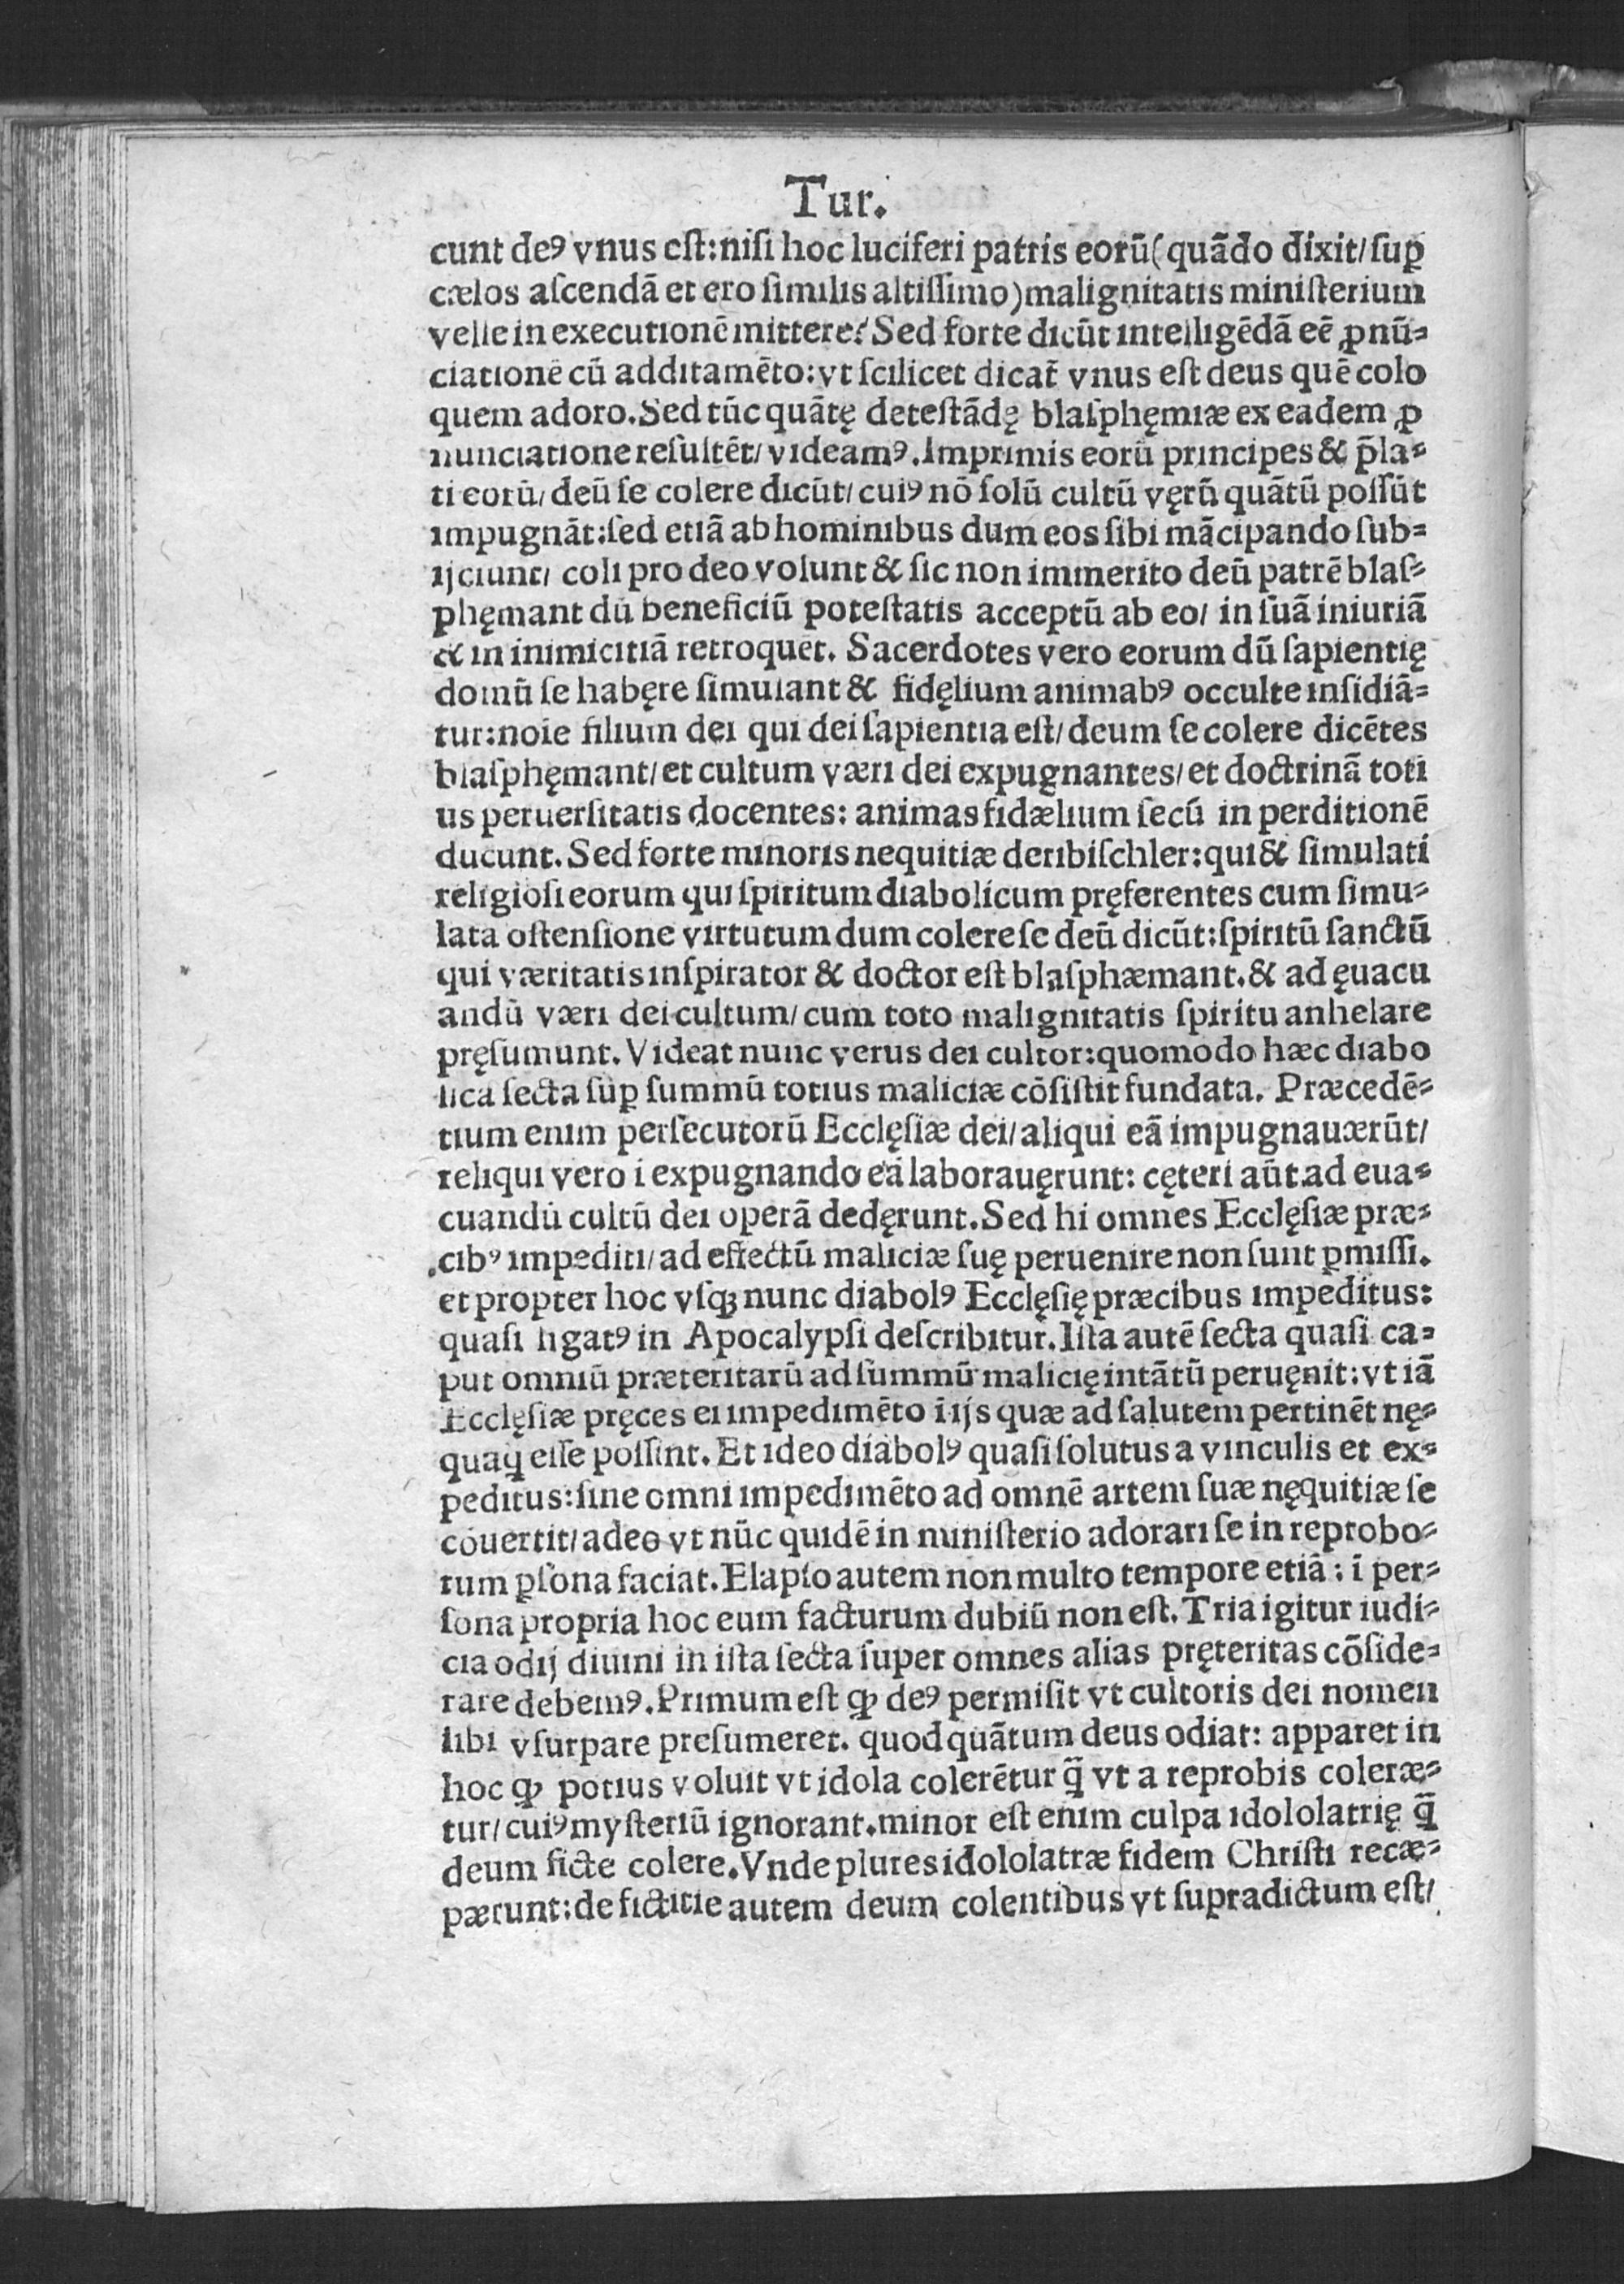 Tur.
cunt deꝰ vnus eſt:niſi hoc luciferi patris eorū(quādo dixit/ſuꝑ
cælos aſcendā et ero ſimilis altiſſimo)malignitatis miniſterium
velle in executionē mittere? Sed forte dicūt intelligēdā eē ꝓnū⸗
ciationē cū additamēto:vt ſcilicet dicat̄ vnus eſt deus quē colo
quem adoro. Sed tūc quātę deteſtādę blaſphęmiæ ex eadem ꝓ
nunciatione reſultēt/ videamꝰ. Imprimis eorū principes & p̄la⸗
ti eorū/ deū ſe colere dicūt/ cuiꝰ nō ſolū cultū vęrū quātū poſſūt
impugnāt:ſed etiā ab hominibus dum eos ſibi mācipando ſub⸗
ijciunt/ coli pro deo volunt & ſic non immerito deū patrē blaſ⸗
phęmant dū beneficiū poteſtatis acceptū ab eo/ in ſuā iniuriā
& in inimicitiā retroquēt. Sacerdotes vero eorum dū ſapientię
domū ſe habęre ſimulant & fidęlium animabꝰ occulte inſidiā⸗
tur:noie filium dei qui dei ſapientia eſt/ deum ſe colere dicētes
blaſphęmant/ et cultum væri dei expugnantes/ et doctrinā toti
us peruerſitatis docentes: animas fidælium ſecū in perditionē
ducunt. Sed forte minoris nequitiæ deribiſchler:qui & ſimulati
religioſi eorum qui ſpiritum diabolicum pręferentes cum ſimu⸗
lata oſtenſione virtutum dum colere ſe deū dicūt:ſpiritū ſanctū
qui væritatis inſpirator & doctor eſt blaſphæmant. & ad ęuacu
andū væri dei cultum/ cum toto malignitatis ſpiritu anhelare
pręſumunt. Videat nunc verus dei cultor:quomodo hæc diabo
lica ſecta ſuꝑ ſummū totius maliciæ cōſiſtit fundata. Præcedē⸗
tium enim perſecutorū Eccleſiæ dei/ aliqui eā impugnauærūt/
reliqui vero i expugnando eā laborauęrunt: cęteri aūt ad eua⸗
cuandū cultū dei operā dedęrunt. Sed hi omnes Ecclęſiæ præ⸗
cibꝰ impediti/ ad effectū maliciæ ſuę peruenire non ſunt ꝑmiſſi.
et propter hoc vſqꝫ nunc diabolꝰ Ecclęſię præcibus impeditus:
quaſi ligatꝰ in Apocalypſi deſcribitur. Iſta autē ſecta quaſi ca⸗
put omniū præteritarū ad ſummū malicię intātū peruęnit: vt iā
Ecclęſiæ pręces ei impedimēto ī ijs quæ ad ſalutem pertinēt nę⸗
quaq̄ eſſe poſſint. Et ideo diabolꝰ quaſi ſolutus a vinculis et ex⸗
peditus:ſine omni impedimēto ad omnē artem ſuæ nęquitiæ ſe
cōuertit/ adeo vt nūc quidē in miniſterio adorari ſe in reprobo⸗
rum ꝑſona faciat. Elapſo autem non multo tempore etiā: ī per⸗
ſona propria hoc eum facturum dubiū non eſt. Tria igitur iudi⸗
cia odij diuini in iſta ſecta ſuper omnes alias pręteritas cōſide⸗
rare debemꝰ. Primum eſt ꝙ deꝰ permiſit vt cultoris dei nomen
ſibi vſurpare preſumeret. quod quātum deus odiat: apparet in
hoc ꝙ potius voluit vt idola colerētur q̄ vt a reprobis coleræ⸗
tur/ cuiꝰ myſteriū ignorant. minor eſt enim culpa idololatrię q̄
deum ficte colere. Vnde plures idololatræ fidem Chriſti recæ⸗
pærunt: de fictitie autem deum colentibus vt ſupradictum eſt/